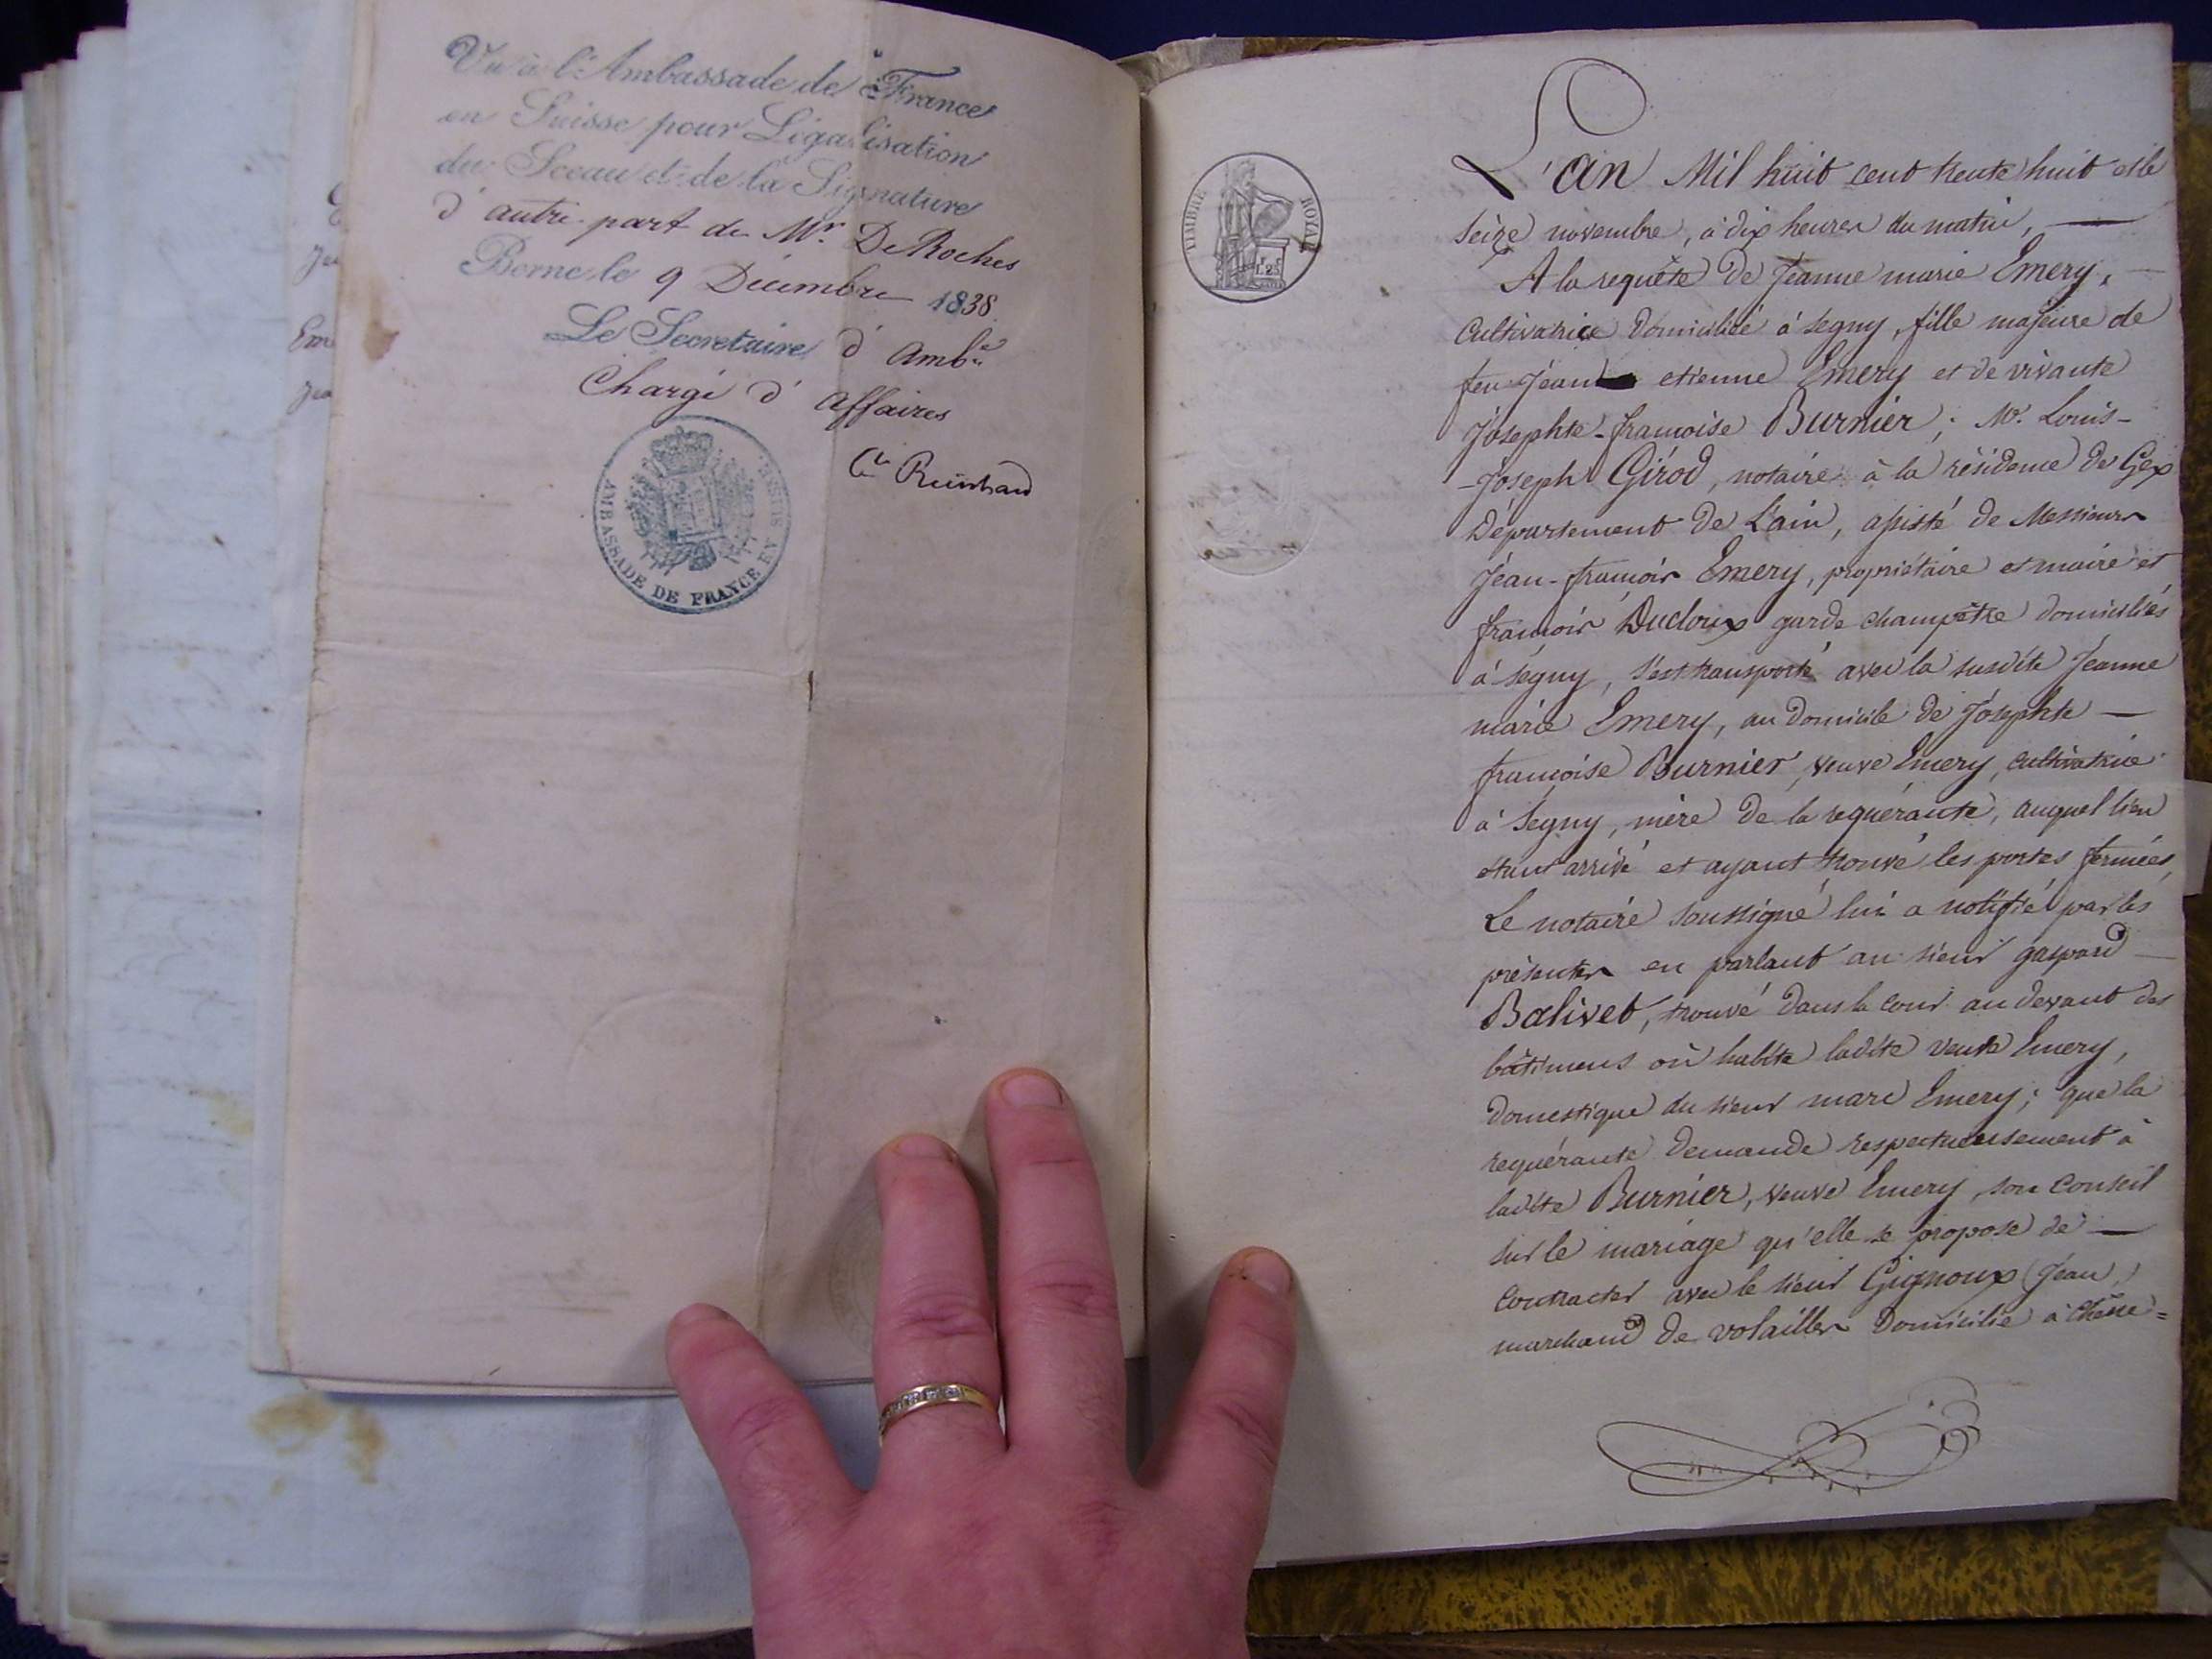 Vu à l'Ambassade de France
en Suisse pour Légalisation
du Sceau et de la Signature
d'autre part de Mr. De Roches
Berne le 9 Décembre 1838.
Le Secretaire d'Amb.de
Chargé d'Affaires
Cte Reinhard
AMBASSADE DE FRANCE EN SUISSE
TIMBRE ROYAL
L'an Mil huit cent trente huit et le
seize novembre, à dix heures du matin, —
A la requête de Jeanne marie Emery, —
Cultivatrice domiciliée à Segny, fille majeure de
feu Jean etienne Emery et de vivante
Josephte-françoise Burnier; Me. Louis-
-Joseph Girod, notaire à la résidence de Gex
Département de L'ain, assisté de Messieurs
Jean-françois Emery, propriétaire et maire et
françois Ducloux garde champêtre domiciliés
à Segny, s'est transporté avec la susdite Jeanne
marie Emery, au domicile de Josephte —
françoise Burnier, veuve Emery, cultivatrice
à Segny, mère de la requérante, auquel lieu
étant arrivé et ayant trouvé les portes fermées,
Le notaire soussigné lui a notifié par les
présentes en parlant au sieur gaspard —
Balivet, trouvé dans la cour au devant des
bâtimens où habite ladite veuve Emery,
domestique du sieur marc Emery; que la
requérante demande respectueusement à
ladite Burnier, veuve Emery, son conseil
sur le mariage qu'elle se propose de —
contracter avec le sieur Gignoux (Jean)
marchand de volailles domicilié à Chêne=